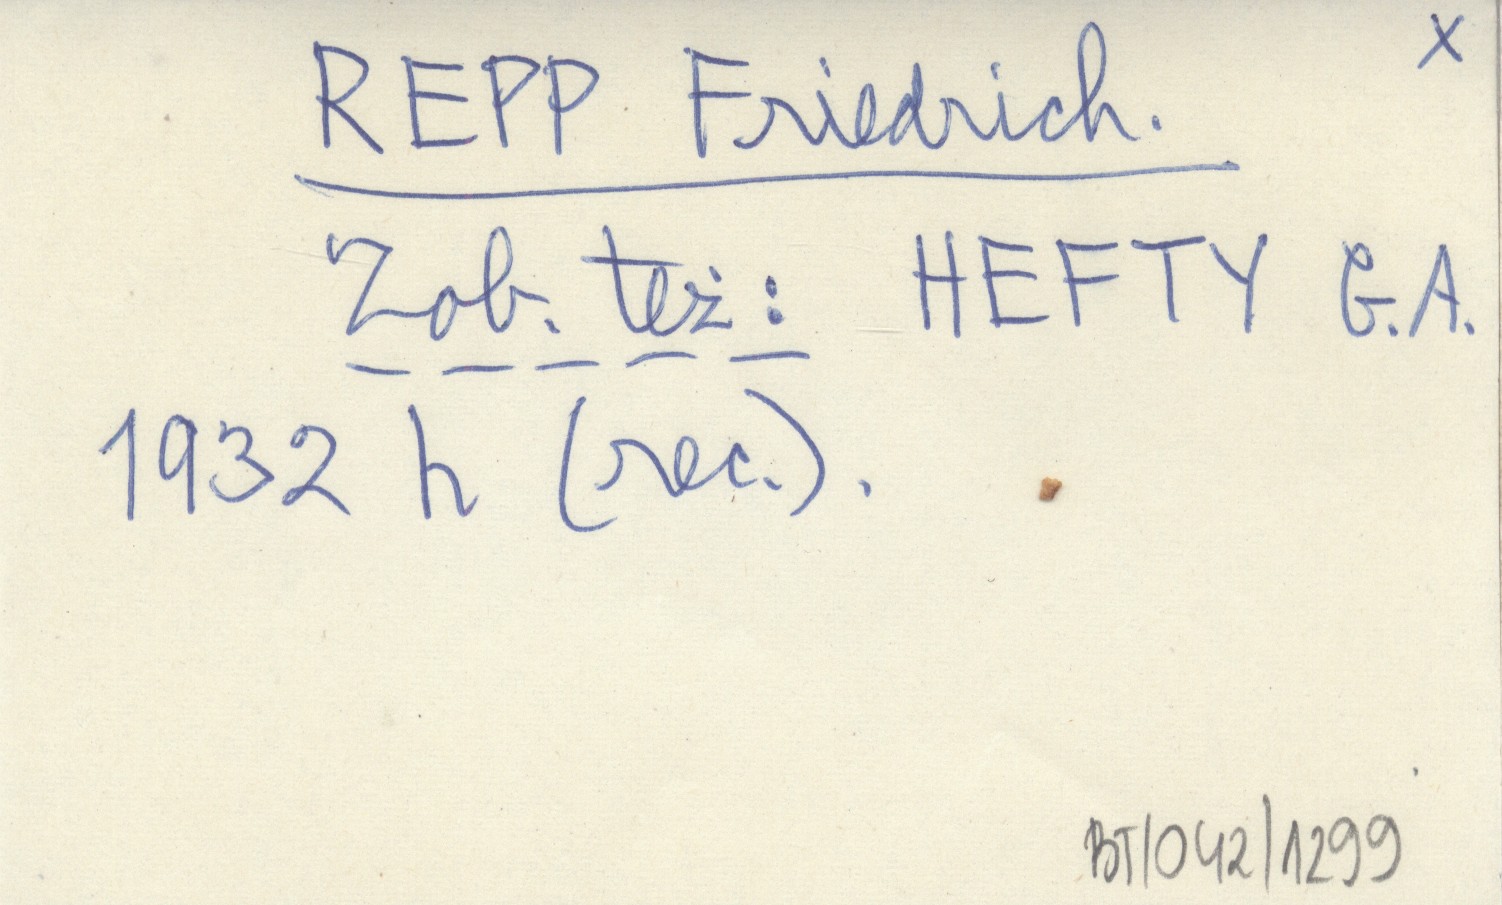 X
REPP Friedrich.
Zob. też: HEFTY G.A.
1932 h (rec.).
BT/042/1299